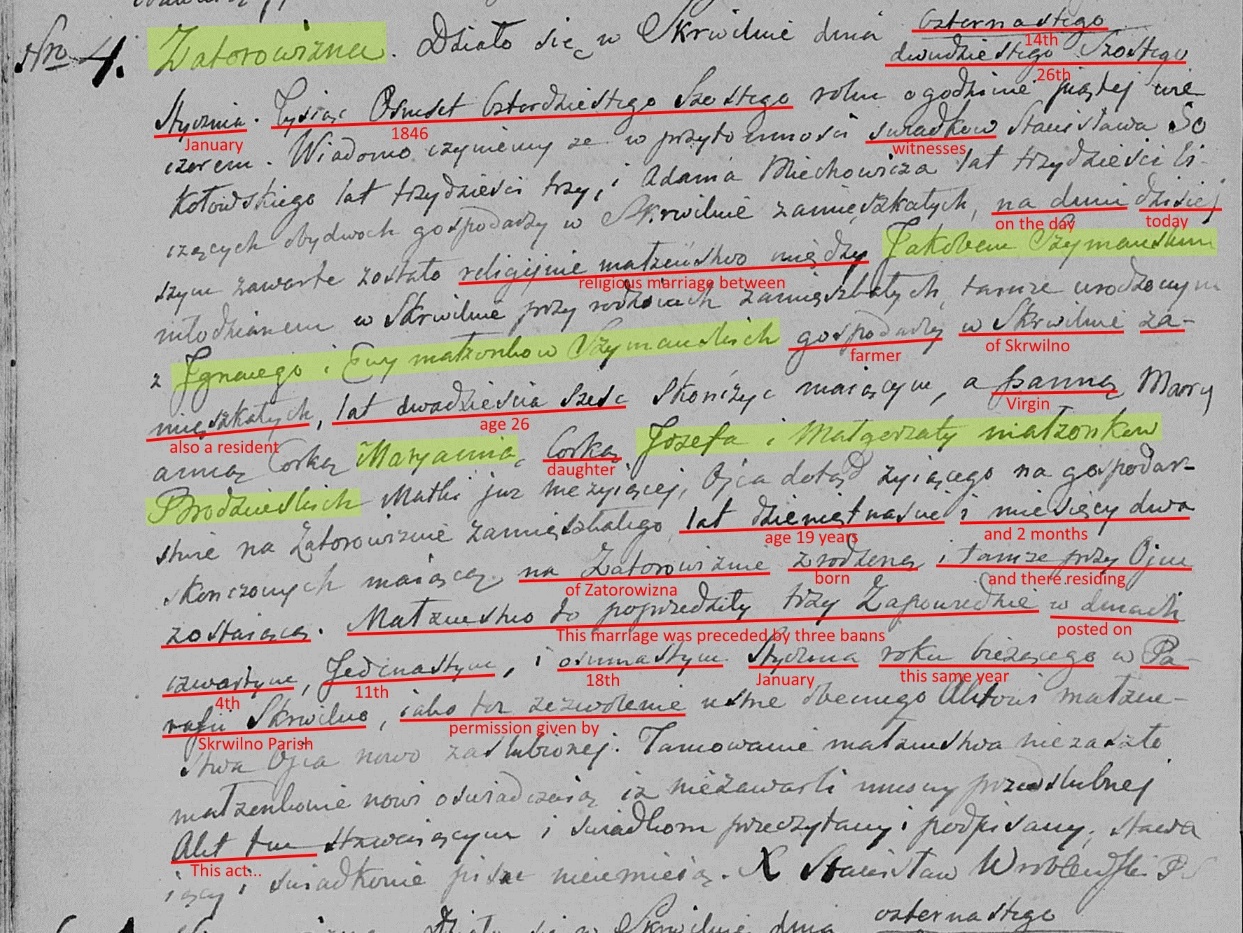 Nro 4. Zatorowizna. Działo się w Skrwilnie dnia czternastego
14th
dwudziestego Szostego
26th
Stycznia. Tysiąc Osmset Czterdziestego Szostego roku o godzinie piątej wie
January 1846
czorem. Wiadomo czyniemy ze w przytomności swiadkow Stanisława So
witnesses
kołowskiego lat trzydzieści trzy, i Adama Miechowicza lat trzydzieści li-
czących obydwoch gospodarzy w Skrwilnie zamięszkałych, na dniu dzisiej
on the day today
szym zawarte zostało religijnie małżeństwo między Jakobem Szymanskim
religious marriage between
młodzianem w Skrwilnie przy rodzicach zamięszkałych, tamze urodzonym
z Ignacego i Ewy małzonkow Szymanskich gospodarzy w Skrwilnie za-
farmer of Skrwilno
mięszkałych, lat dwadzieścia szesc skończyc maiącym, a panną Mary
also a resident age 26 Virgin
anną Corką Maryanna, Corką Jozefa i Małgorzaty małzonkow
daughter
Brodzinskich Matki juz nieżyiącej, Ojca dotąd zyiącego na gospodar-
stwie na Zatorowiznie zamięszkałego, lat dziewiętnaście i miesięcy dwa
age 19 years and 2 months
skonczonych maiącą, na Zatorowiznie zrodzoną i tamze przy Ojcu
of Zatorowizna born and there residing
zostaiącą. Małzenstwo to poprzedziły trzy Zapowiedzie w dniach
This marriage was preceded by three banns posted on
czwartym, Jedenastym, i osmnastym Stycznia roku bieżącego w Pa-
4th 11th 18th January this same year
rafii Skrwilno, iako też zezwolenie ustne obecnego Aktowi małzen-
Skrwilno Parish permission given by
stwa Ojca nowo zaslubionej. Tamowanie małzenstwa nie zaszło
małzonkowie nowi oświadczaią iz niezawarli umowy przedslubnej
Akt ten stawaiącym i swiadkom przeczytany i podpisany, stawa
This act...
iący i swiadkowie pisac nieumieią. X Stanisław Wroblewski P.
Działo się w Skrwilnie dnia czternastego